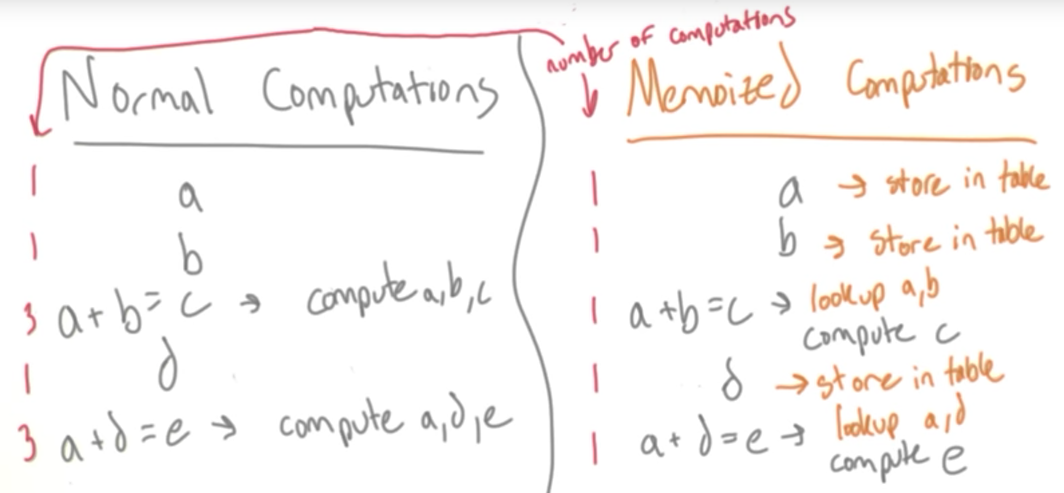 number of computations
Normal Computations
1 a
1 b
3 a+b=c → compute a,b,c
1 d
3 a+d=e → compute a,d,e
Memoized Computations
1 a → store in table
1 b → store in table
1 a+b=c → lookup a,b
compute c
1 d → store in table
1 a+d=e → lookup a,d
compute e